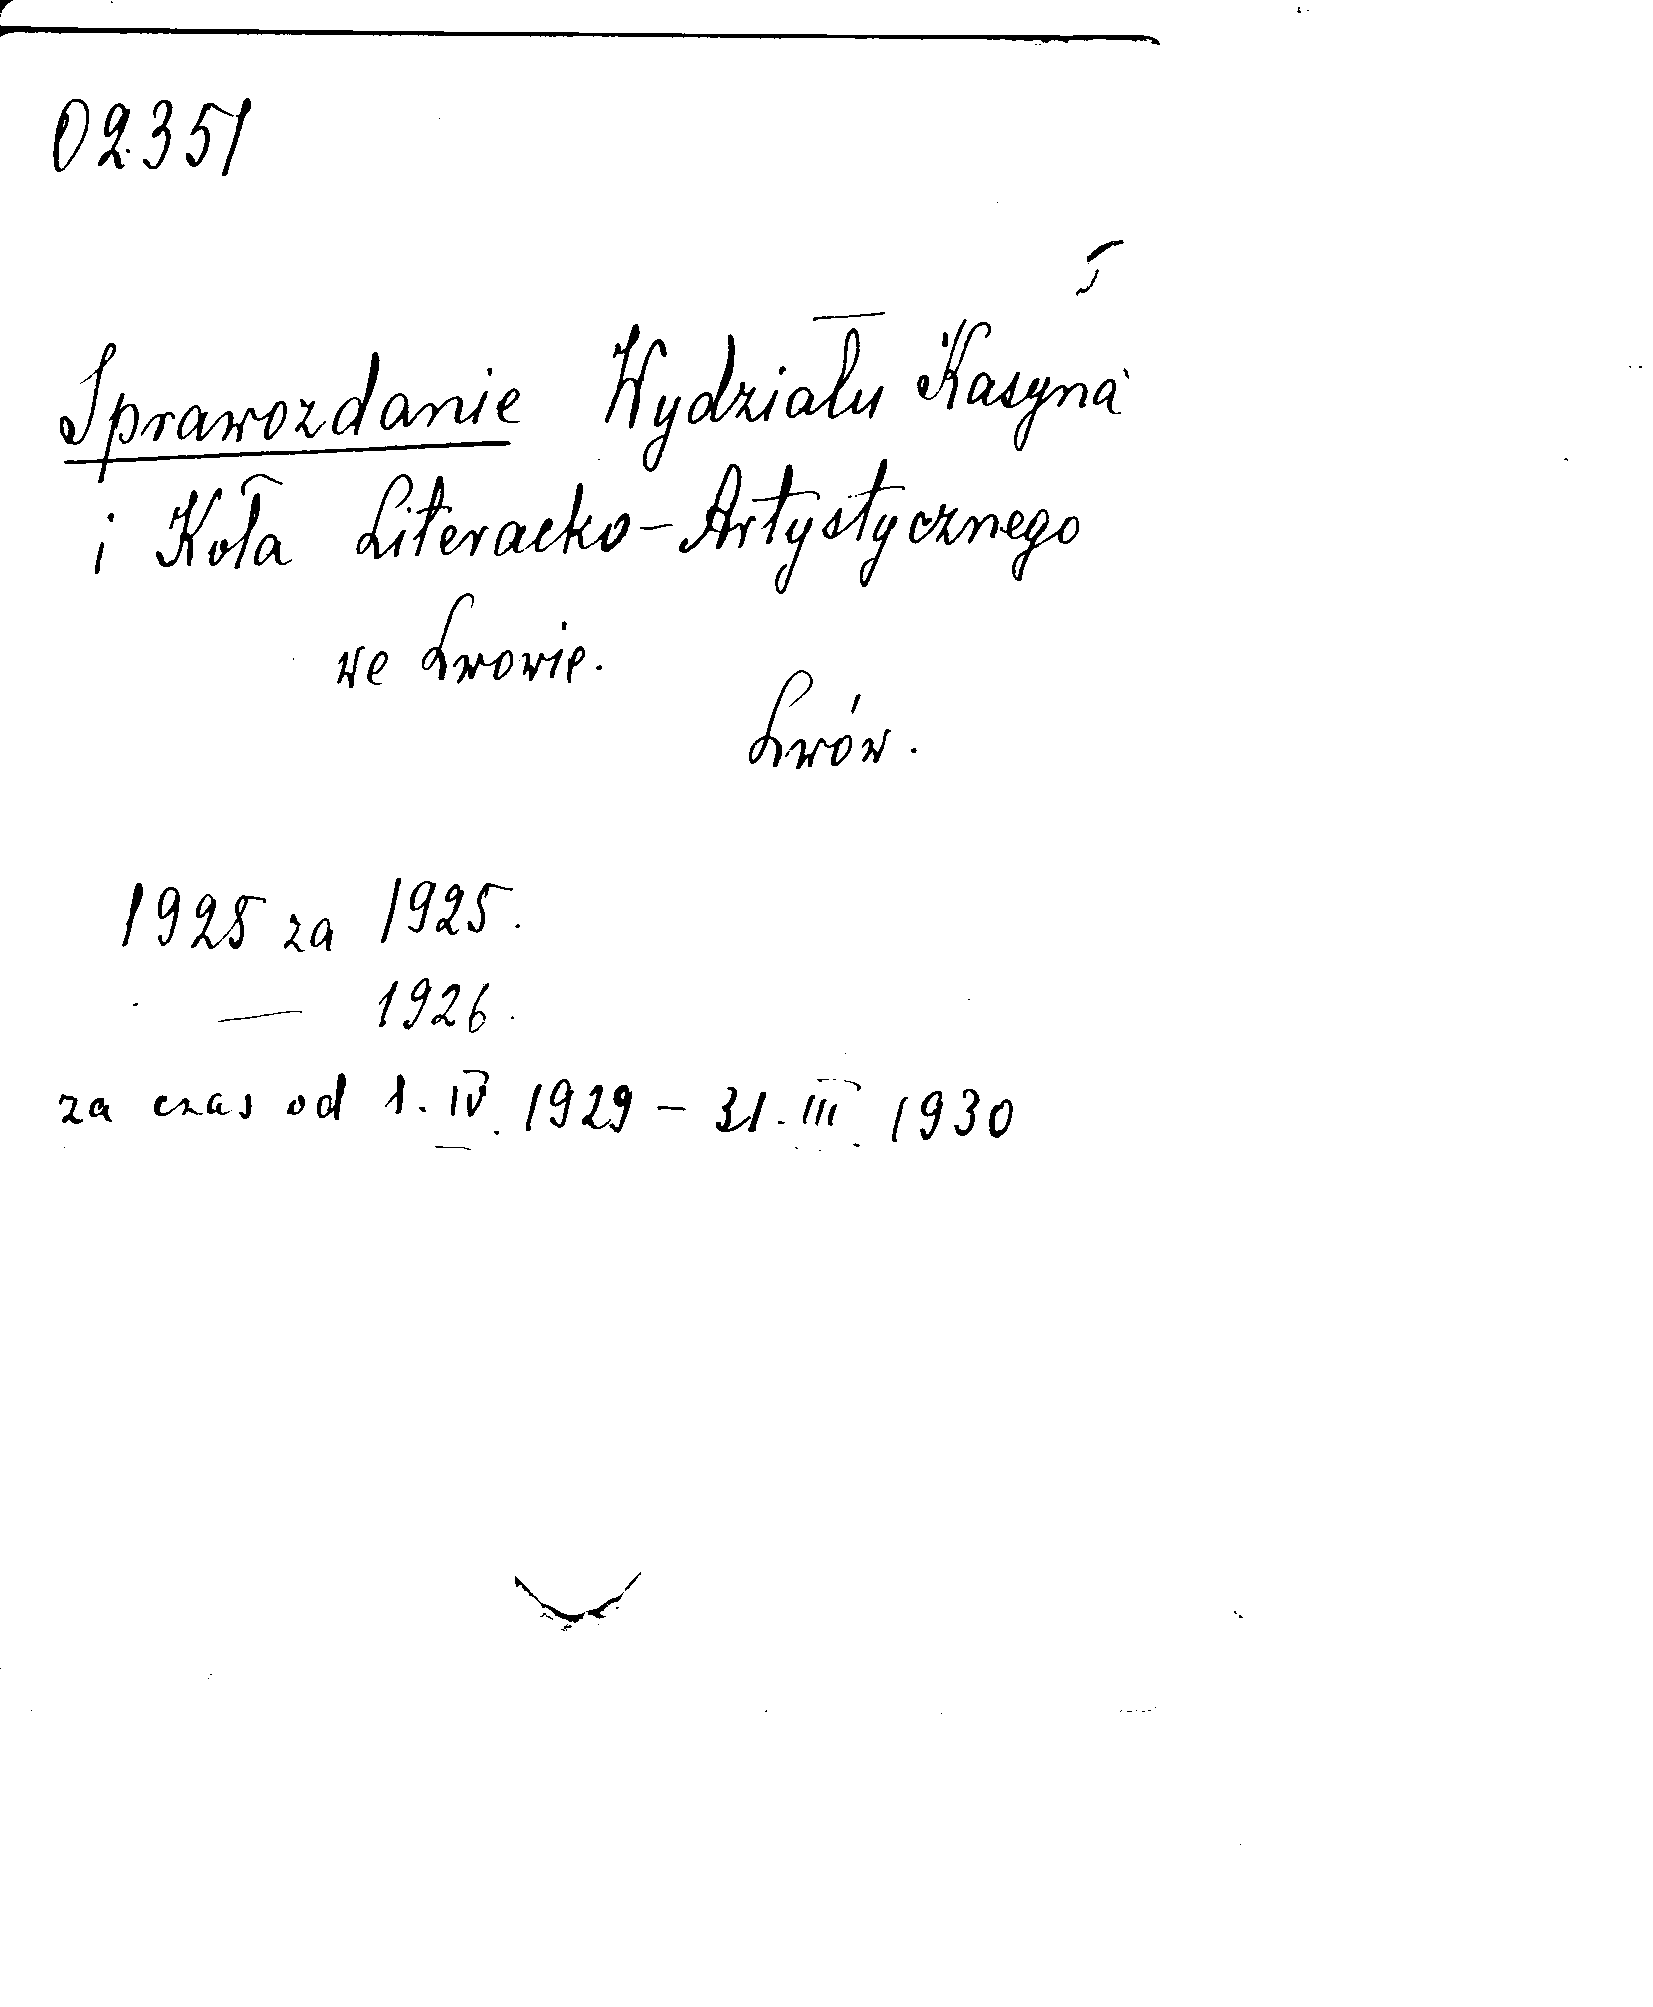 02351
Sprawozdanie Wydziału Kasyna
i Koła Literacko-Artystycznego
we Lwowie.
Lwów.
1925 za 1925.
— 1926.
za czas od 1. IV. 1929 – 31. III. 1930